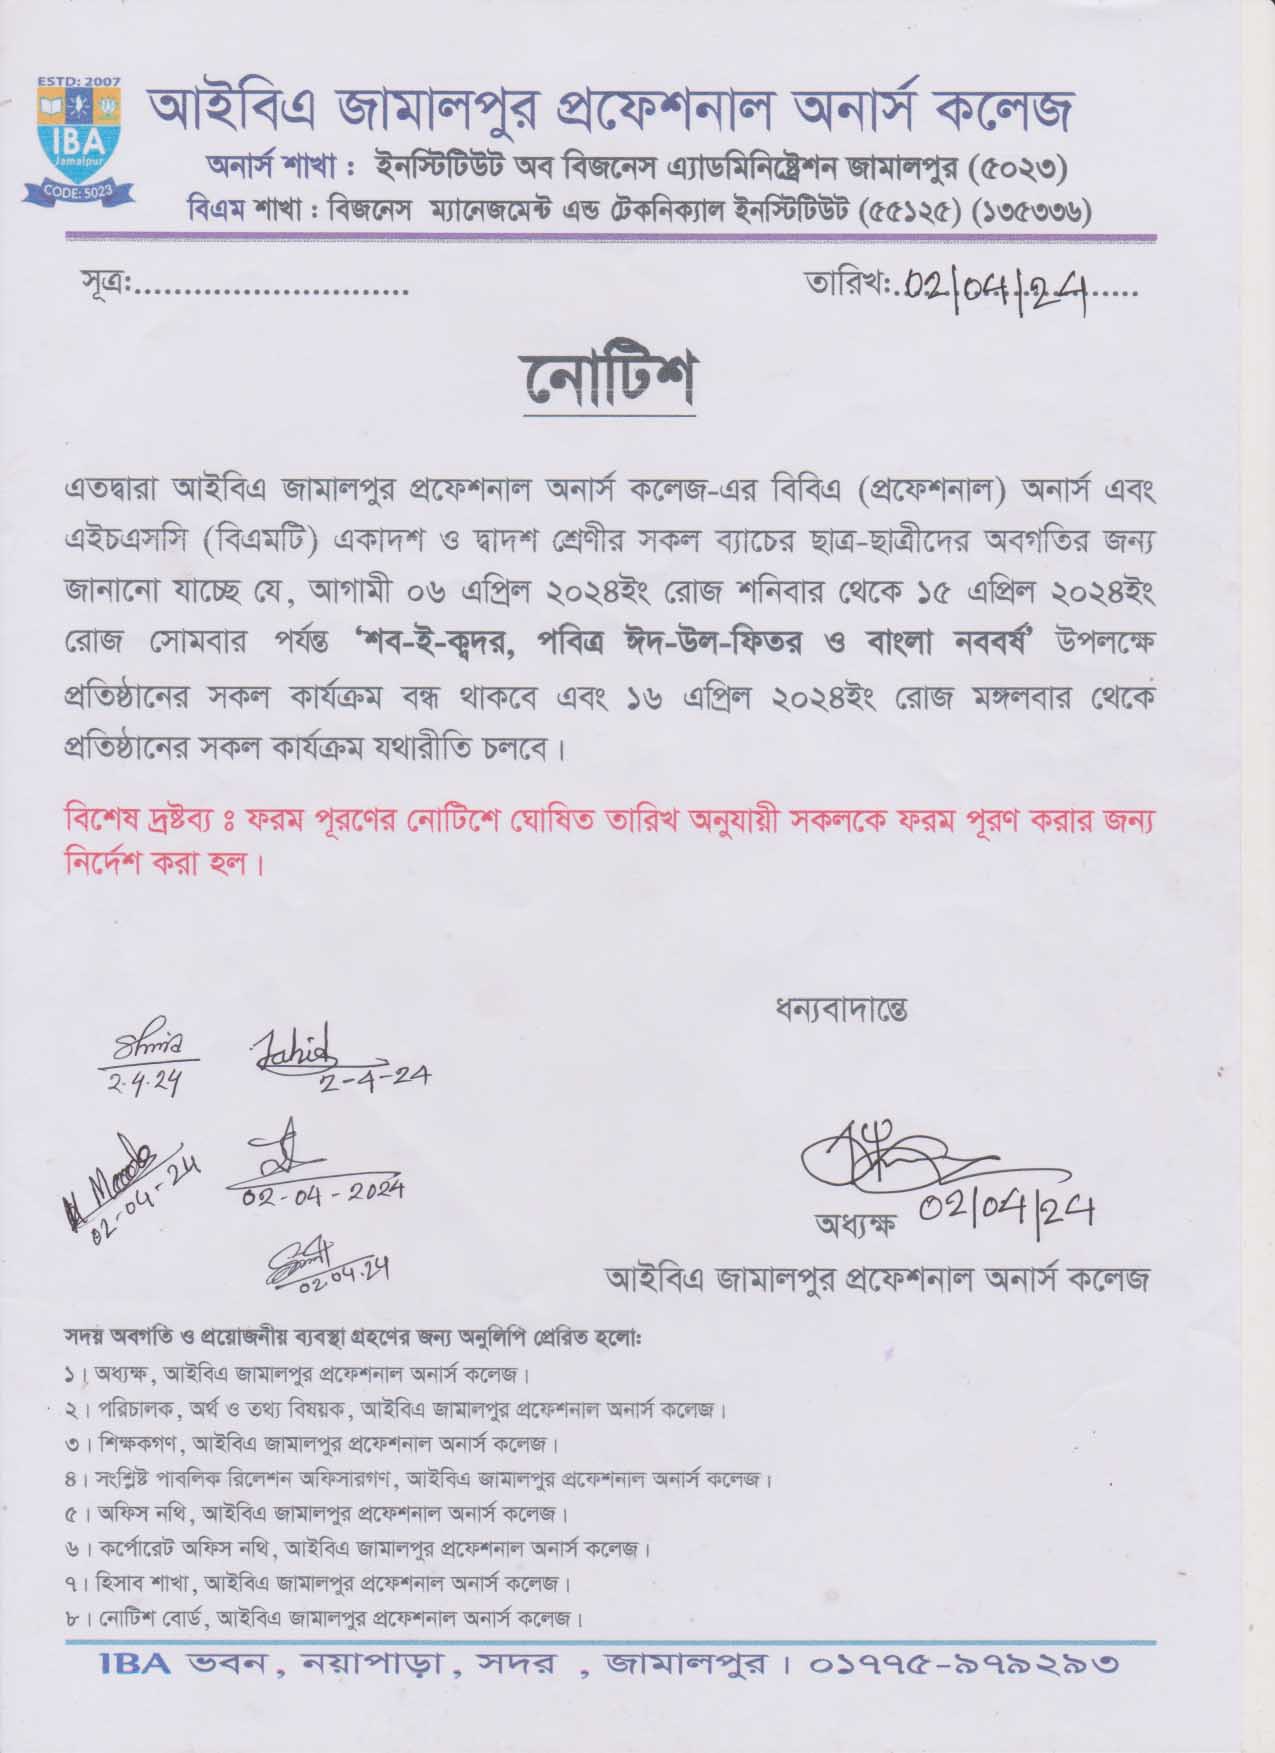 ESTD: 2007
IBA
Jamalpur
CODE: 5023
আইবিএ জামালপুর প্রফেশনাল অনার্স কলেজ
অনার্স শাখা : ইনস্টিটিউট অব বিজনেস এ্যাডমিনিষ্ট্রেশন জামালপুর (৫০২৩)
বিএম শাখা : বিজনেস ম্যানেজমেন্ট এন্ড টেকনিক্যাল ইনস্টিটিউট (৫৫১২৫) (১৩৫৩৩৬)
সূত্র:............................ তারিখ:..02/04/24.....
নোটিশ
এতদ্বারা আইবিএ জামালপুর প্রফেশনাল অনার্স কলেজ-এর বিবিএ (প্রফেশনাল) অনার্স এবং
এইচএসসি (বিএমটি) একাদশ ও দ্বাদশ শ্রেণীর সকল ব্যাচের ছাত্র-ছাত্রীদের অবগতির জন্য
জানানো যাচ্ছে যে, আগামী ০৬ এপ্রিল ২০২৪ইং রোজ শনিবার থেকে ১৫ এপ্রিল ২০২৪ইং
রোজ সোমবার পর্যন্ত ‘শব-ই-ক্বদর, পবিত্র ঈদ-উল-ফিতর ও বাংলা নববর্ষ’ উপলক্ষে
প্রতিষ্ঠানের সকল কার্যক্রম বন্ধ থাকবে এবং ১৬ এপ্রিল ২০২৪ইং রোজ মঙ্গলবার থেকে
প্রতিষ্ঠানের সকল কার্যক্রম যথারীতি চলবে।
বিশেষ দ্রষ্টব্য ঃ ফরম পূরণের নোটিশে ঘোষিত তারিখ অনুযায়ী সকলকে ফরম পূরণ করার জন্য
নির্দেশ করা হল।
ধন্যবাদান্তে
2.4.24
Jahid
2-4-24
02-04-24
02-04-2024
02.04.24
অধ্যক্ষ 02/04/24
আইবিএ জামালপুর প্রফেশনাল অনার্স কলেজ
সদয় অবগতি ও প্রয়োজনীয় ব্যবস্থা গ্রহণের জন্য অনুলিপি প্রেরিত হলো:
১। অধ্যক্ষ, আইবিএ জামালপুর প্রফেশনাল অনার্স কলেজ।
২। পরিচালক, অর্থ ও তথ্য বিষয়ক, আইবিএ জামালপুর প্রফেশনাল অনার্স কলেজ।
৩। শিক্ষকগণ, আইবিএ জামালপুর প্রফেশনাল অনার্স কলেজ।
৪। সংশ্লিষ্ট পাবলিক রিলেশন অফিসারগণ, আইবিএ জামালপুর প্রফেশনাল অনার্স কলেজ।
৫। অফিস নথি, আইবিএ জামালপুর প্রফেশনাল অনার্স কলেজ।
৬। কর্পোরেট অফিস নথি, আইবিএ জামালপুর প্রফেশনাল অনার্স কলেজ।
৭। হিসাব শাখা, আইবিএ জামালপুর প্রফেশনাল অনার্স কলেজ।
৮। নোটিশ বোর্ড, আইবিএ জামালপুর প্রফেশনাল অনার্স কলেজ।
IBA ভবন, নয়াপাড়া, সদর , জামালপুর। ০১৭৭৫-৯৭৯২৯৩